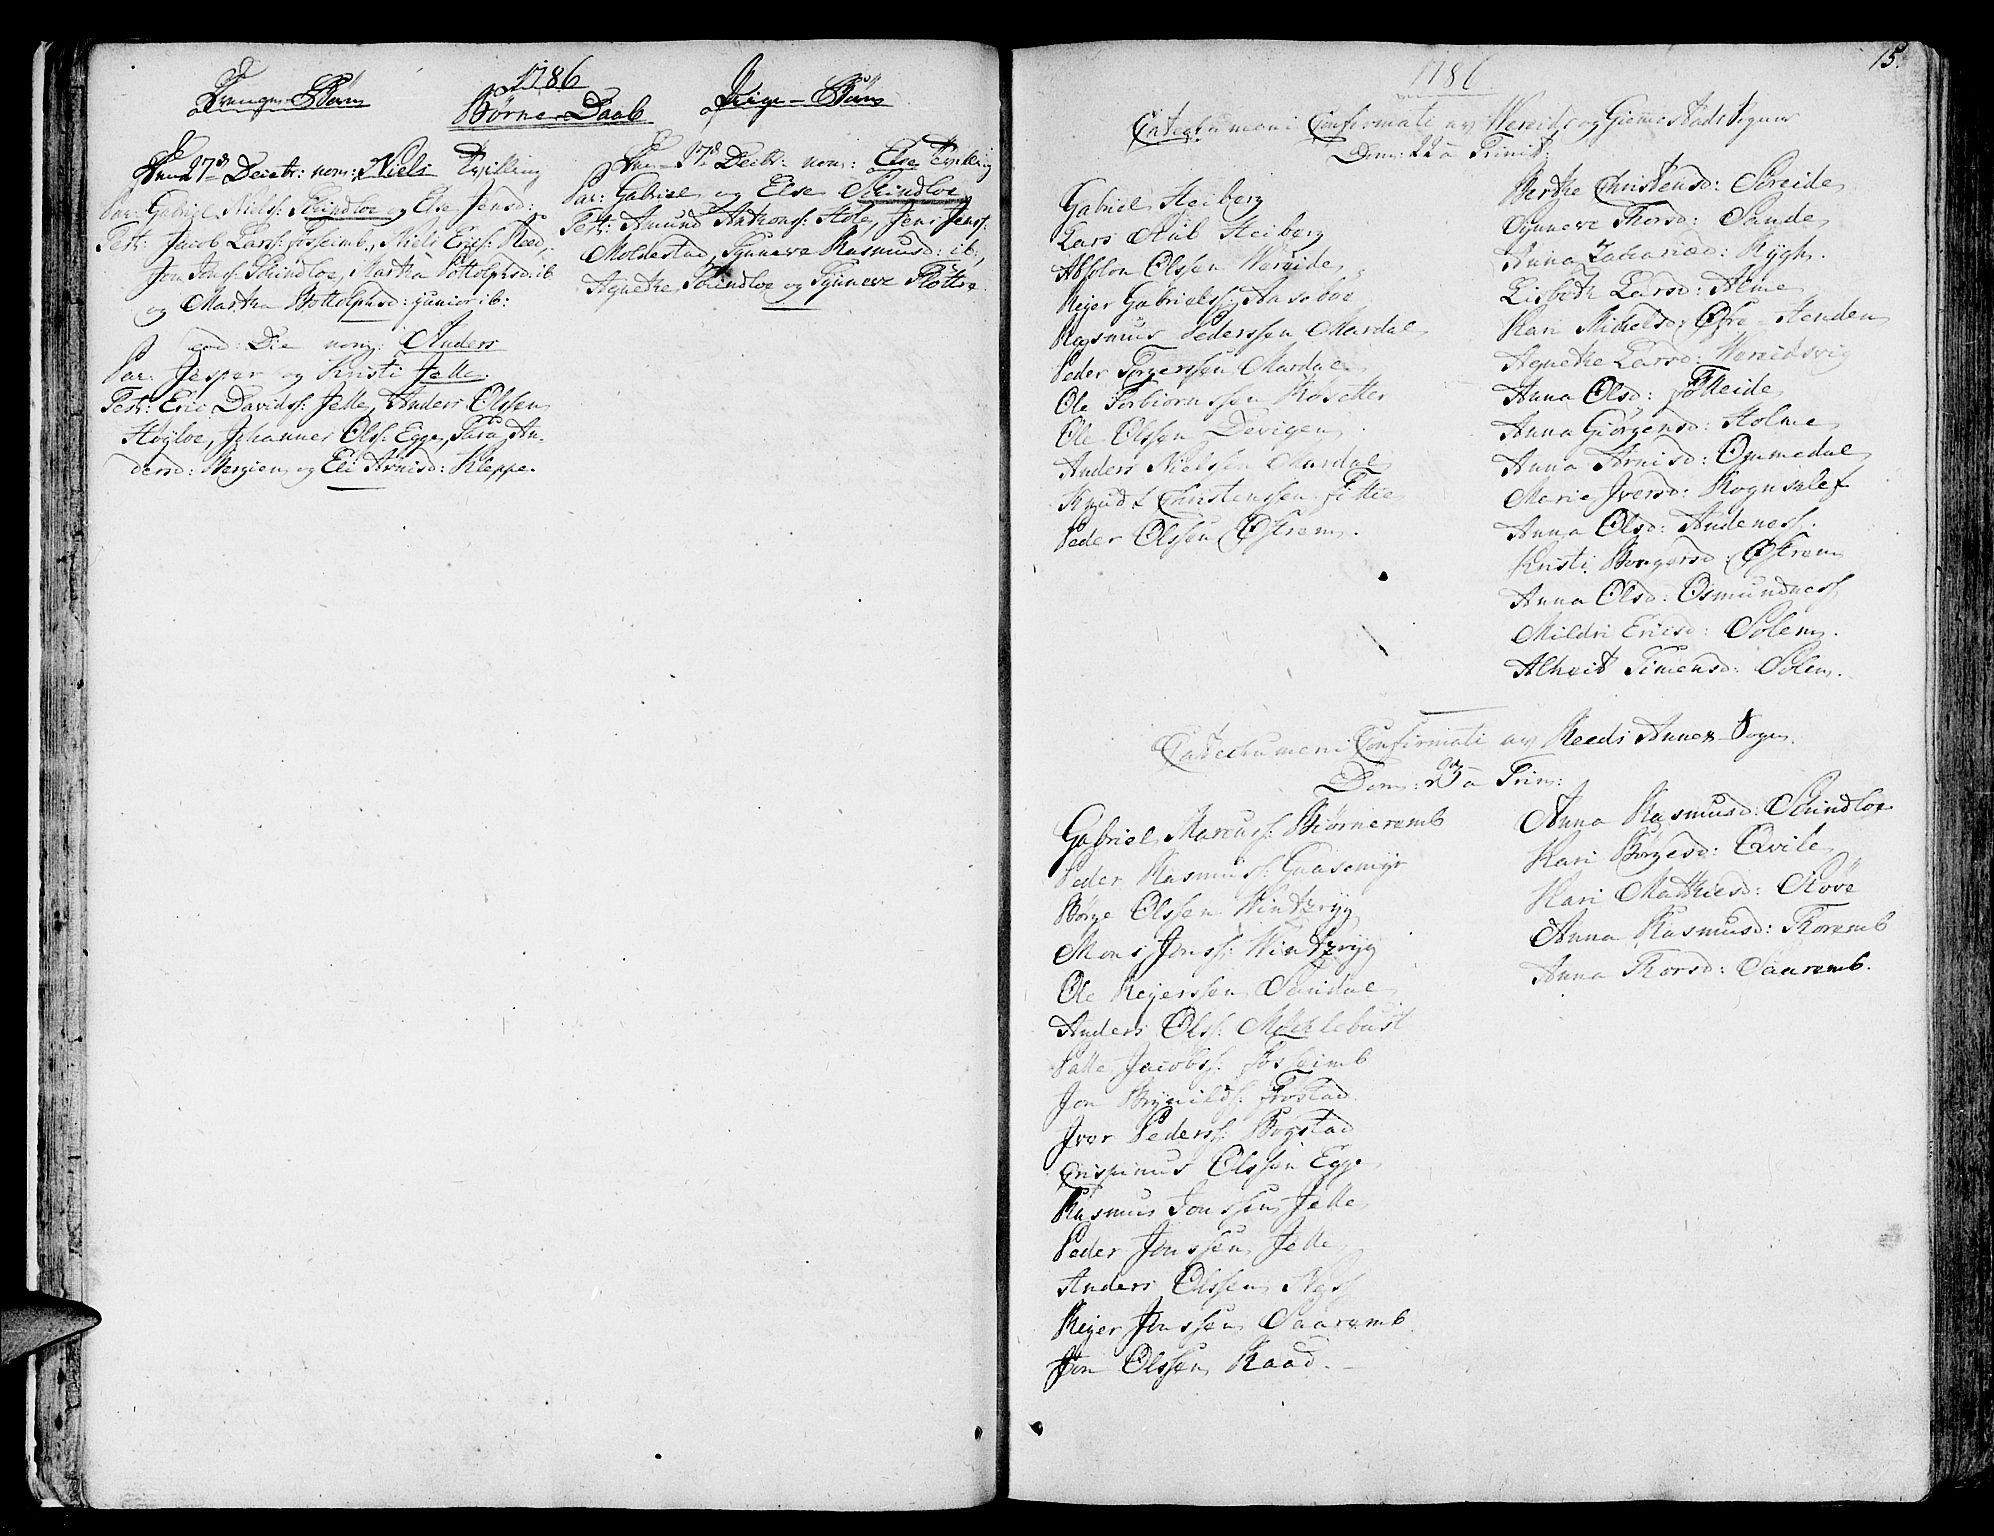 1786
Drenge-Børn
Børne-Daab
Pige-Børn
Den 27de Decbr: nom: Niels Tvilling
Par: Gabriel Nielss: Skindloe og Else Jensd:
Test: Jacob Larss: Fosseimb, Niels Erics: Reed,
Jon Jonss: Skindloe, Martha Bottolphsd: ib
og Martha Bottolphsd: junior ib:
eod: Die nom: Anders
Par: Jesper og Kristi Jelle.
Test: Eric Davidss: Jelle, Anders Olssen
Høyloe, Johannes Olss: Egge, Sara An-
dersd: Bergien og Eli Arnisd: Kleppe.
Den 27de Decbr: nom: Else Tvilling
Par: Gabriel og Else Skindloe
Test: Amund Anthonss: Hole, Jens Jenss:
Moldestad, Synneve Rasmusd: ib:,
Agnethe Skindloe og Synneve Flötte.
15.
1786
Catechumeni Confirmati av Wereids og Giemestads Sogner
Dom: 22a Trinit:
Gabriel Heiberg
Lars Heiberg
Absolon Olssen Wereide
Reyer Gabrielss: Aaseboe
Rasmus Pederssen Mardal
Peder Torgerssen Mardal
Ole Torbiørnssen Rosetter
Ole Olssen Devigen
Anders Nielssen Mardal
Knud Christenssen
Peder Olssen Østrem.
Berthe Christensd: Søreide
Synneve Thorsd: Sande
Anna Zachariæd: Rygh.
Lisbeth Larsd: Alme
Kari Michelsd: Øfre-Henden
Agnethe Larsd: Wereidsvig
Anna Olsd: Føtteide
Anna Giørgensd: Holme
Anna Arnisd: Ommedal
Marie Iversd: Rognkle
Anna Olsd: Andeness.
Kristi Borgersd: Østrem
Anna Olsd: Osmundness
Mildri Ericsd: Solem.
Alheit Simensd: Solem.
Catechumeni Confirmati av Reeds Annex-Sogn.
Dom: 23a Trin:
Gabriel Marcuss: Biørneremb
Peder Rasmuss: Gaasemyr
Børge Olssen Wintzryg
Mons Jonss: Wintzryg
Ole Reyerssen Sandal
Anders Olss: Myklebust
Palle Jacobss: Fosseimb
Jon Brynildss: Frøstad
Iver Pederss: Bogstad
Crispinus Olssen Egge
Rasmus Jonssen Jelle
Peder Jonssen Jelle
Anders Olssen Ness
Reyer Jonssen Saaremb
Jon Olssen Raad.
Anna Rasmusd: Skindloe
Kari Børgesd: Qvile
Kari Mathiesd: Støve
Anna Rasmusd: Thoremb
Anna Thorsd: Saaremb.